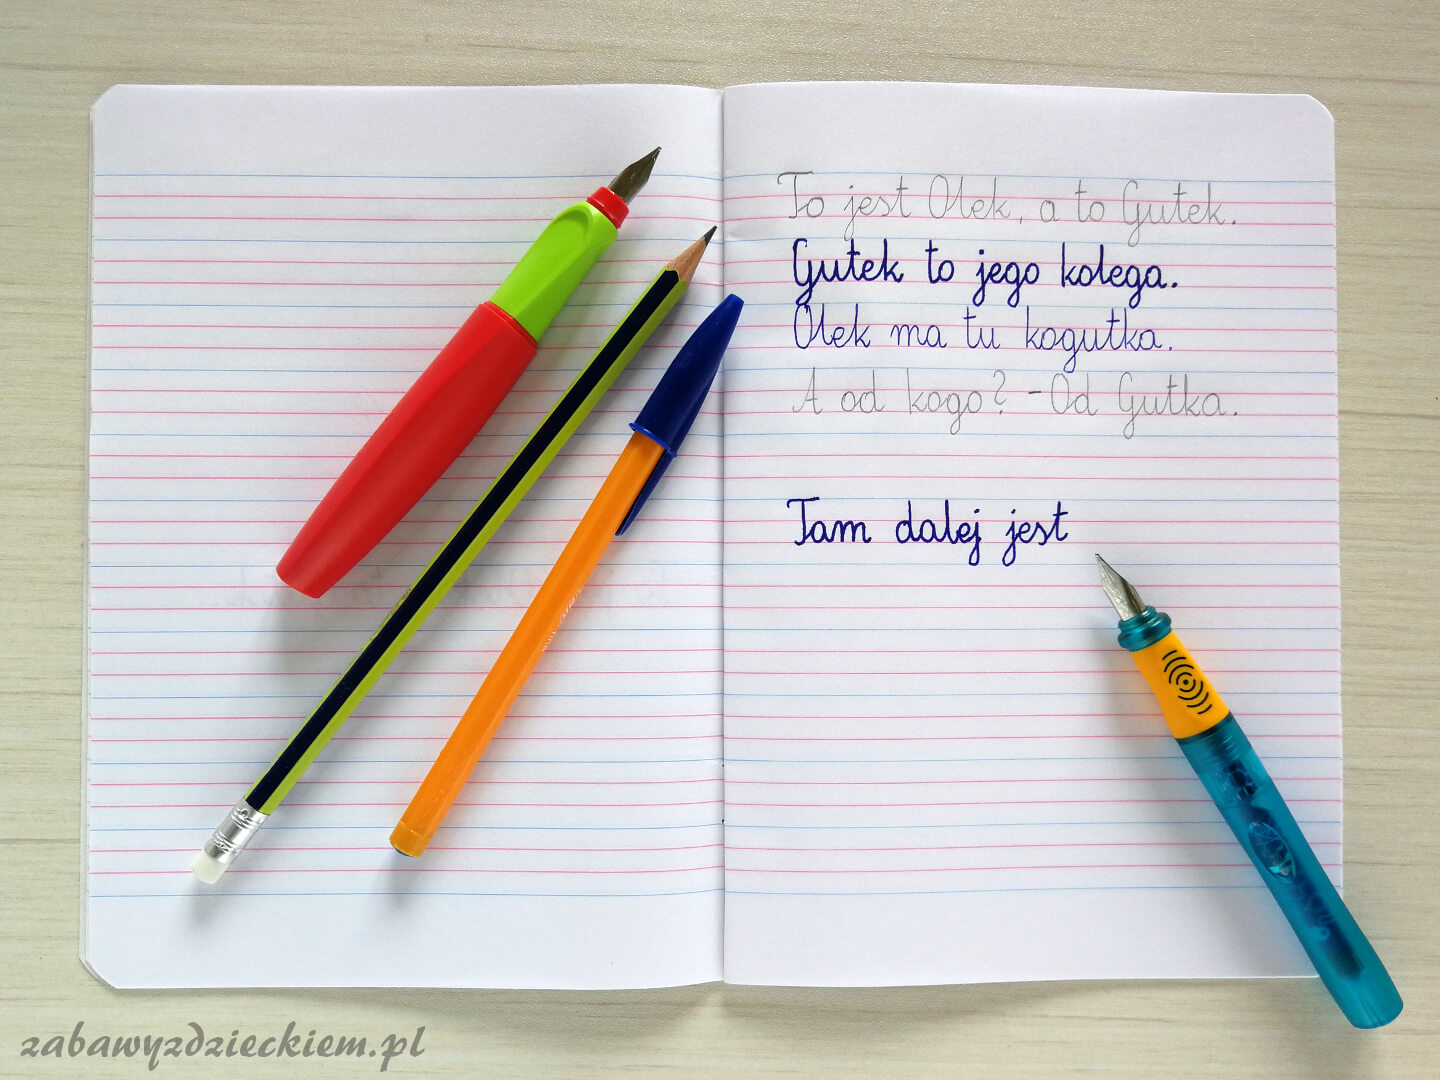 To jest Olek, a to Gutek.
Gutek to jego kolega.
Olek ma tu kogutka.
A od kogo? - Od Gutka.
Tam dalej jest
zabawyzdzieckiem.pl